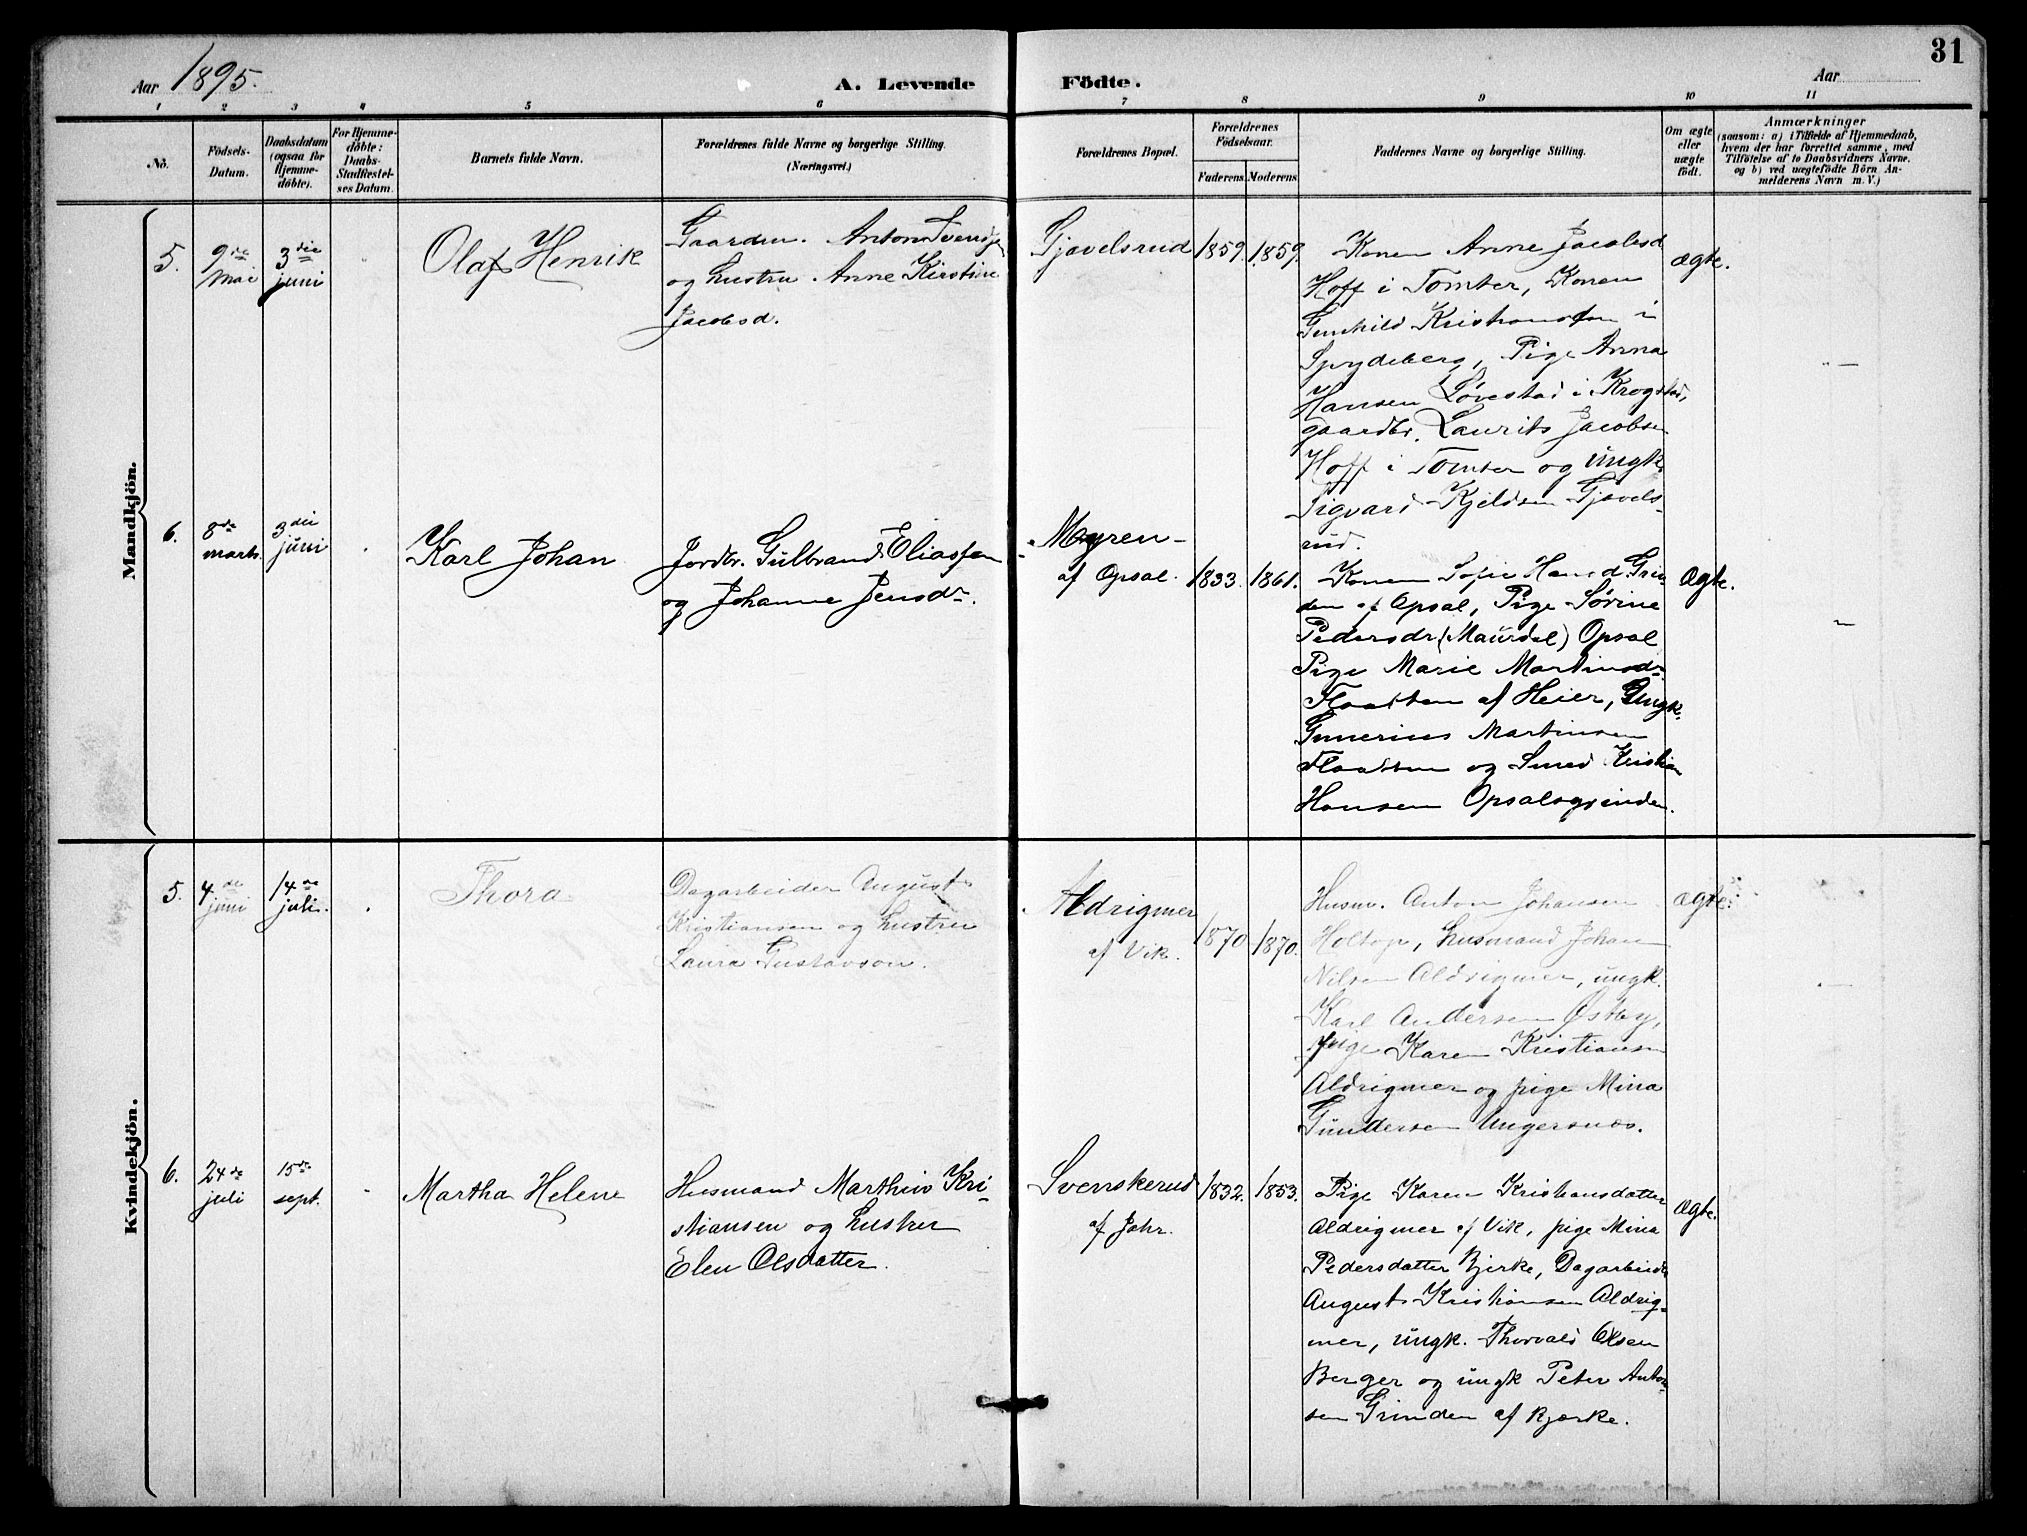 31
Aar 1895.
A. Levende Födte.
Aar
1 2 3 4 5 6 7 8 9 10 11
No.
Födsels-
Datum.
Daabsdatum
(ogsaa for
Hjemme-
döbte).
For Hjemme-
döbte:
Daabs-
Stadfæstel-
ses Datum.
Barnets fulde Navn.
Forældrenes fulde Navne og borgerlige Stilling.
(Næringsvei.)
Forældrenes Bopæl.
Forældrenes
Födselsaar.
Faderens. Moderens.
Faddernes Navne og borgerlige Stilling.
Om ægte
eller
uægte
födt.
Anmærkninger
(saasom: a) i Tilfælde af Hjemmedaab,
hvem der har forrettet samme, med
Tilföielse af to Daabsvidners Navne,
og b) ved uægtefödte Börn An-
melderens Navn m. V.)
Mandkjön.
5.
9de
Mai
3die
juni
Olaf Henrik
Gaardm. Anton
og hustru Anne Kirstine
Jacobsd.
Gjavelsrud
1859.
1859.
Konen Anne Jacobsd
Hoff i Tomter, Konen
Gunhild Kristiansen i
Spydeberg, Pige Anna
Hansen Løvestad i Krogstad,
gaardbr. Laurits Jacobsen
Hoff i Tomter og ungk.
Sigvard Kjeldsen Gjavels-
rud.
ægte.
6.
8de
marts.
3die
juni
Karl Johan
Jordbr. Gulbrand Eliassen
og Johanne Jensdr.
Myren
af Opsal.
1833.
1861.
Konen Sofie Hansd. Grin
den af Opsal, Pige Sørine
Pedersdr (Maurdal) Opsal
Pige Marie Martinsdr
Flaatten af Heier, Ungk.
Gunerius Martinsen
Flaatten og Smed Kristian
Hansen Opsalsgrinden.
Ægte.
Kvindekjön.
5.
4de
juni
14de
juli.
Thora
Dagarbeider August
Kristiansen og hustru
Laura Gustavson.
Aldrigmer
af Vik.
1870
1870.
Husm. Anton Johansen
Holtop, husmand Johan
Nilsen Aldrigmer, ungk.
Karl Andersen Østby,
pige Karen Kristiansen
Aldrigmer og pige Mina
Gundersen Ungersnæs.
Ægte.
6.
24de
juli
15de
sept.
Martha Helene
Husmand Marthin Kri-
stiansen og hustru
Elen Olsdatter.
Svenskerud
af Jahr.
1832.
1853.
Pige Karen Kristiansdatter
Aldrigmer af Vik, pige Mina
Pedersdatter Bjerke, Dagarbeider
August Kristiansen Aldrig-
mer, ungk. Thorvald Olsen
Berger og ungk Peter Anton
sen Grinden af Bjærke.
Ægte.